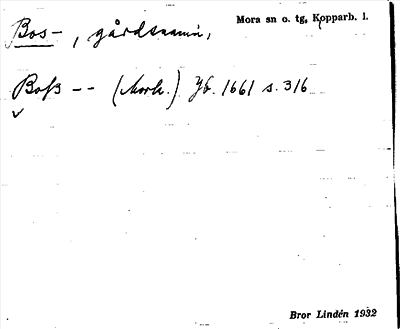 Bos-, gårdsnamn,
Mora sn o. tg, Kopparb. l.
Boß -- (Mork.) Jb. 1661 s. 316
Bror Lindén 1932